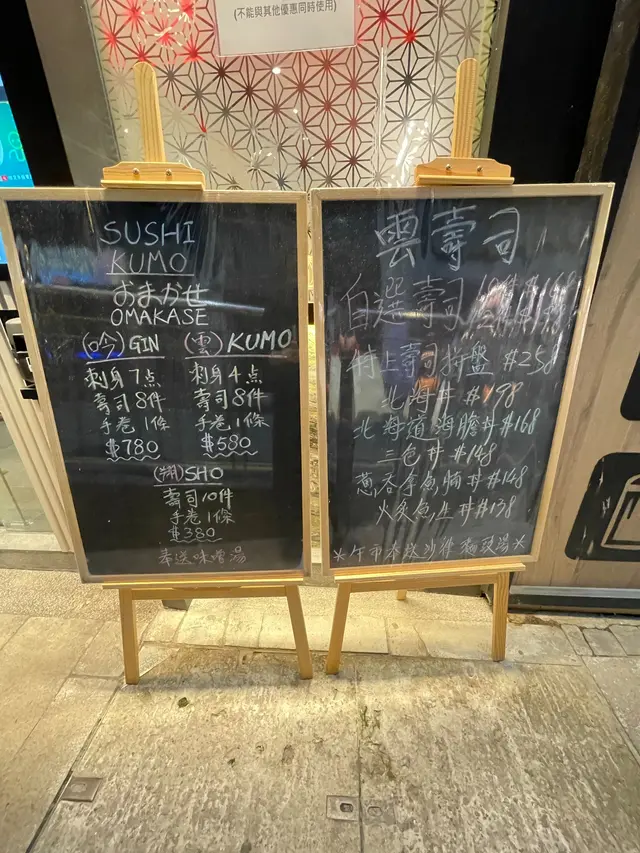 (不能與其他優惠同時使用)
SUSHI
KUMO
おまかせ
OMAKASE
(吟) GIN
刺身7点
壽司8件
手卷1條
$780
(雲) KUMO
刺身4点
壽司8件
手卷1條
$580
(翔) SHO
壽司10件
手卷1條
$380
奉送味噌湯
雲壽司
自選壽司
特上壽司拼盤 $258
北海丼 $198
北海道海膽丼 $168
三色丼 $148
蔥吞拿魚蓉丼 $148
火炙魚生丼 $138